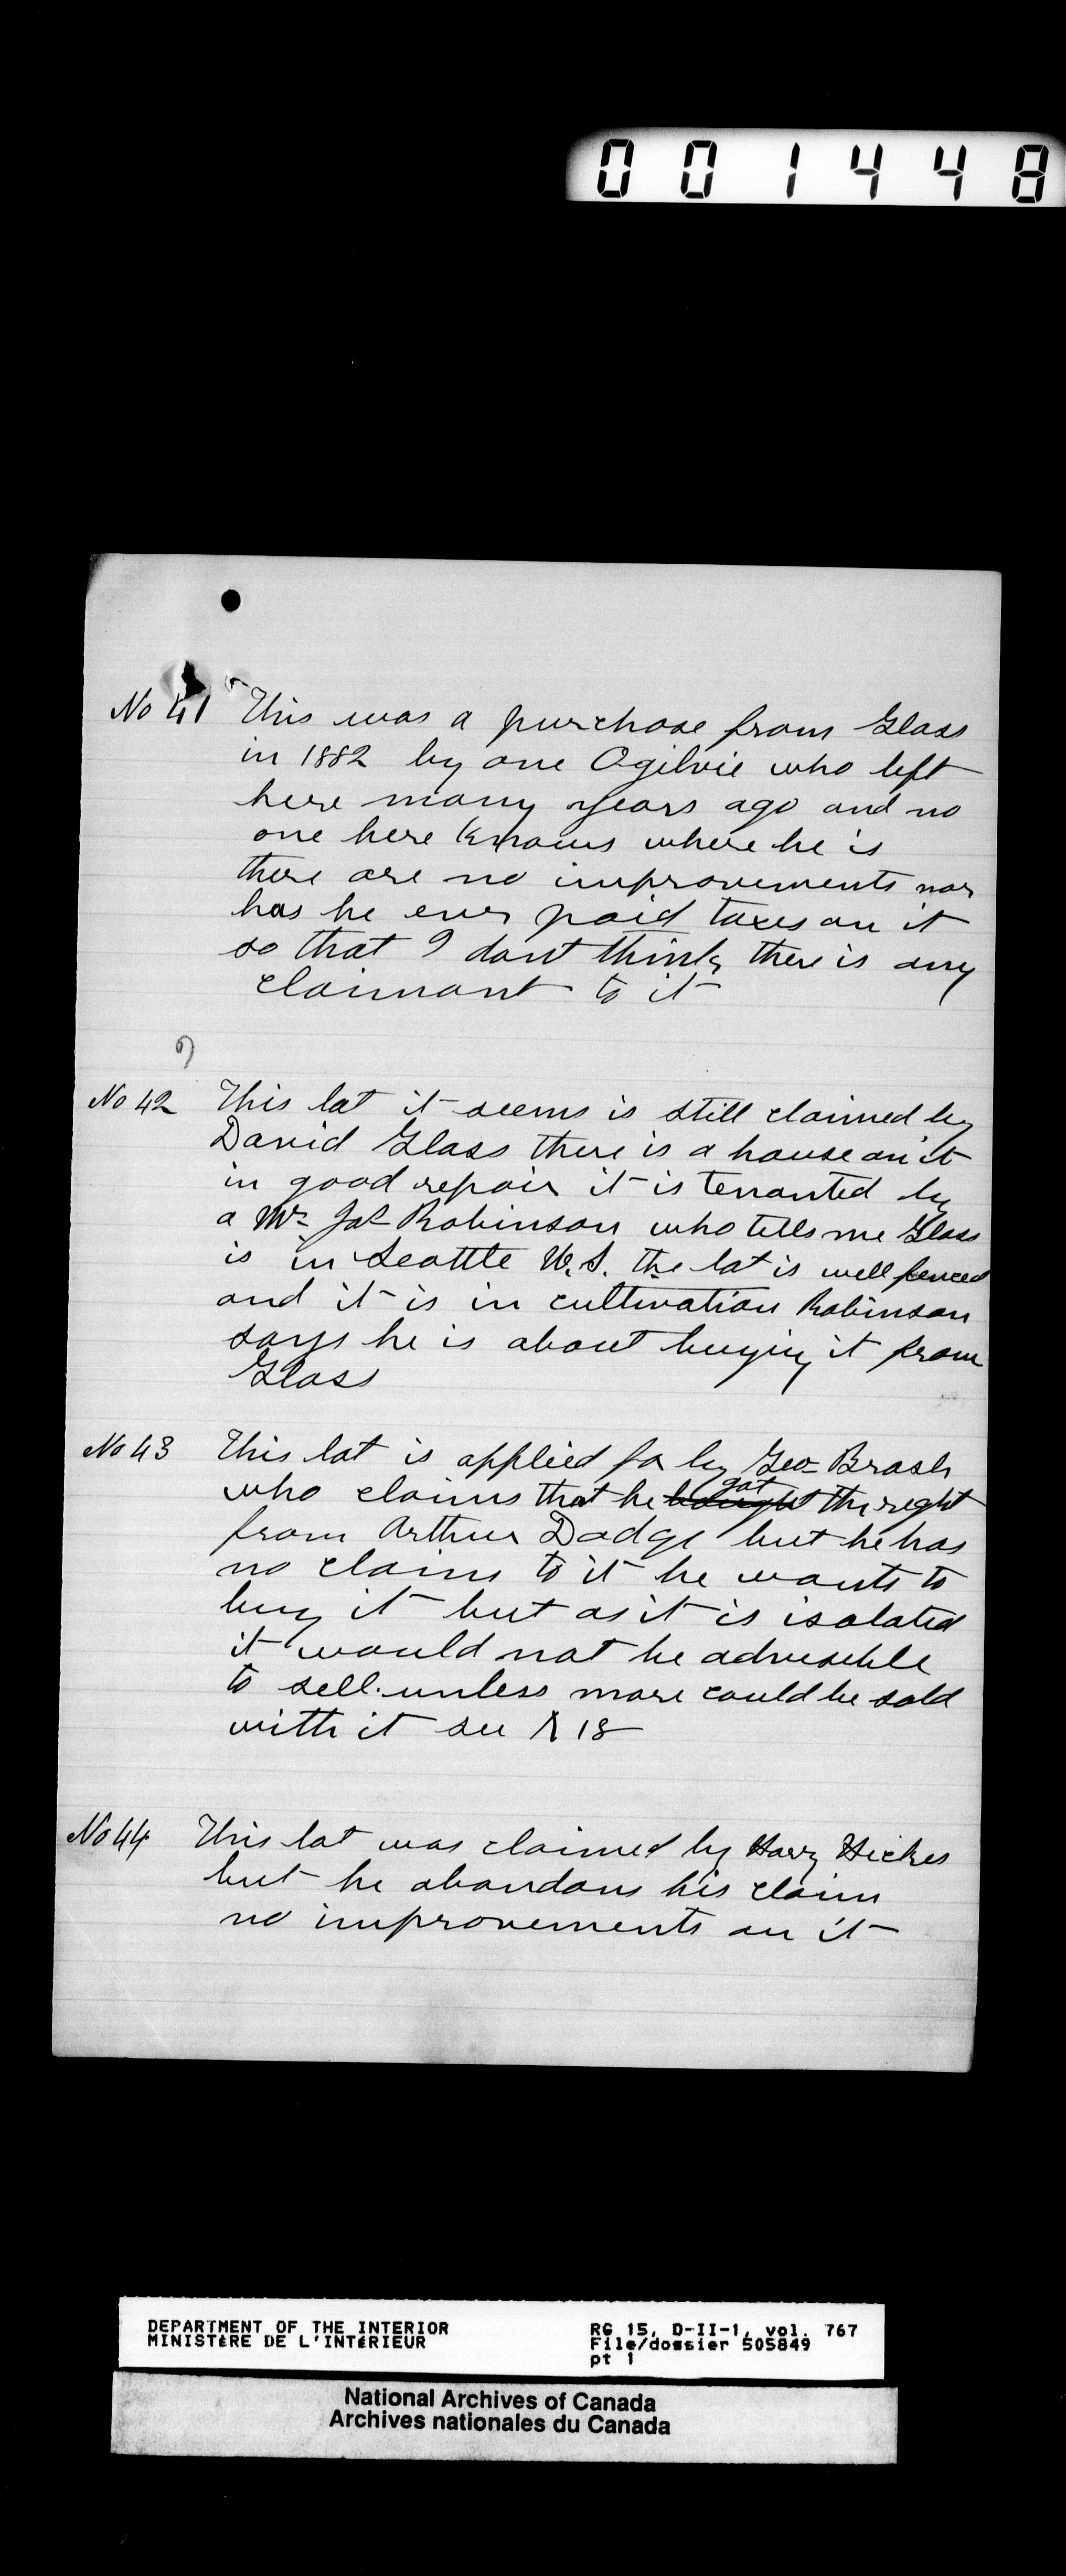 001448
No 41 This was a purchase from Glass
in 1882 by one Ogilvie who left
here many years ago and no
one here knows where he is
there are no improvements nor
has he ever paid taxes on it
so that I dont think there is any
claimant to it
No 42 This lot it seems is still claimed by
David Glass there is a house on it
in good repair it is tenanted by
a Mr Jas Robinson who tells me Glass
is in Seattle U.S. the lot is well fenced
and it is in cultivation Robinson
says he is about buying it from
Glass
No 43 This lot is applied for by Geo Brash
got
who claims that he bought the right
from Arthur Dodge but he has
no claims to it he wants to
buy it but as it is isolated
it would not be adviseble
to sell unless more could be sold
with it see 18
No 44 This lot was claimed by Harry Hickes
but he abandons his claim
no improvements on it
DEPARTMENT OF THE INTERIOR
MINISTÈRE DE L'INTÉRIEUR
RG 15, D-II-1, vol. 767
File/dossier 505849
pt 1
National Archives of Canada
Archives nationales du Canada